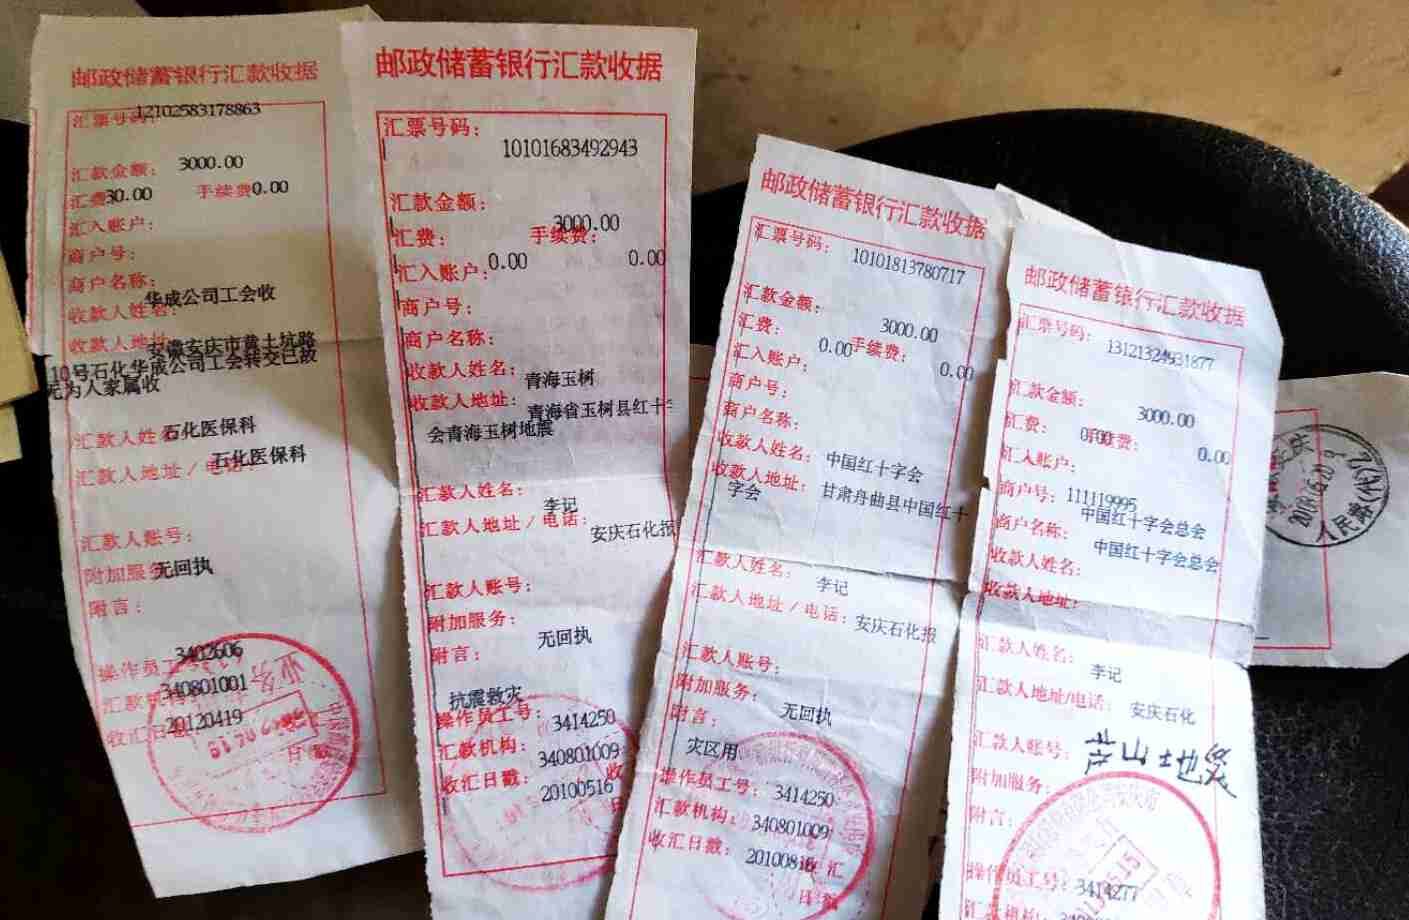 邮政储蓄银行汇款收据
汇票号码:
12102583178863
汇款金额: 3000.00
汇费30.00 手续费0.00
汇入账户:
商户号:
商户名称:
收款人姓名: 华成公司工会收
收款人地址 安徽安庆市黄土坑路
10号石化华成公司工会转交已故
为人家属收
汇款人姓名 石化医保科
汇款人地址/电话 石化医保科
汇款人账号:
附加服务 无回执
附言:
操作员工号 3402606
汇款机构 340801001
收汇日戳 20120419
邮政储蓄银行汇款收据
汇票号码:
10101683492943
汇款金额:
3000.00
汇费: 手续费:
0.00 0.00
汇入账户:
商户号:
商户名称:
收款人姓名: 青海玉树
收款人地址: 青海省玉树县红十字
会青海玉树地震
汇款人姓名: 李记
汇款人地址/电话: 安庆石化报
汇款人账号:
附加服务:
无回执
附言:
抗震救灾
操作员工号: 3414250
汇款机构: 340801009
收汇日戳: 20100516
邮政储蓄银行汇款收据
汇票号码: 10101813780717
汇款金额: 3000.00
汇费: 0.00 手续费: 0.00
汇入账户:
商户号:
商户名称:
收款人姓名: 中国红十字会
收款人地址: 甘肃舟曲县中国红十
字会
汇款人姓名: 李记
汇款人地址/电话: 安庆石化报
汇款人账号:
附加服务: 无回执
附言:
灾区用
操作员工号: 3414250
汇款机构: 340801009
收汇日戳: 20100816
邮政储蓄银行汇款收据
汇票号码: 13121324931877
汇款金额: 3000.00
汇费: 0.00 手续费: 0.00
汇入账户:
商户号: 111119995
商户名称: 中国红十字会总会
收款人姓名: 中国红十字会总会
收款人地址:
汇款人姓名: 李记
汇款人地址/电话: 安庆石化
汇款人账号: 芦山地震
附加服务:
附言:
操作员工号: 3414277
汇款机构:
人民路(代)